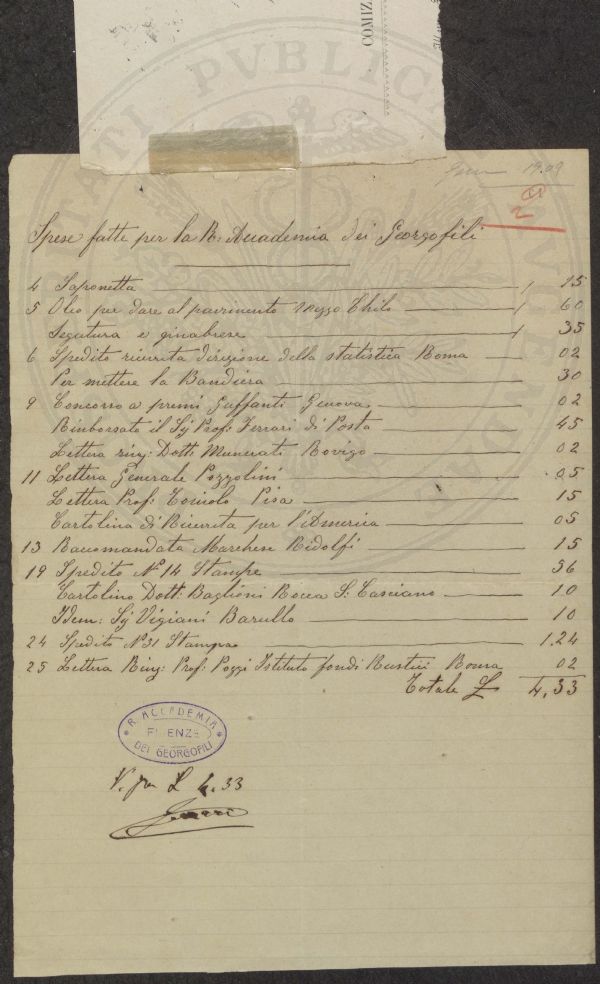 COMIZ
PVBLICA
1909
2
Spese fatte per la R. Accademia dei Georgofili
4 Saponetta 15
5 Olio per dare al pavimento mezzo Chilo 60
Segatura e ginabrese 35
6 Spedito ricevuta direzione della statistica Roma 02
Per mettere la Bandiera 30
9 Concorso a premi Guffanti Genova 02
Rimborsato il Sig Prof. Ferrari di Posta 45
Lettera ring: Dott. Munerati Rovigo 02
11 Lettera Generale Pozzolini 05
Lettera Prof. Toniolo Pisa 15
Cartolina di Ricevuta per l'America 05
13 Racomandata Marchese Ridolfi 15
19 Spedito No 14 Stampe 56
Cartolino Dott. Baglioni Rocca S. Casciano 10
Idem: Sig Vigiani Barullo 10
24 Spedito No 31 Stampe 1.24
25 Lettera Ring: Prof: Poggi Istituto fondi Rustici Roma 02
Totale £ 4,33
R. ACCADEMIA
FIRENZE
DEI GEORGOFILI
V. per £ 4.33